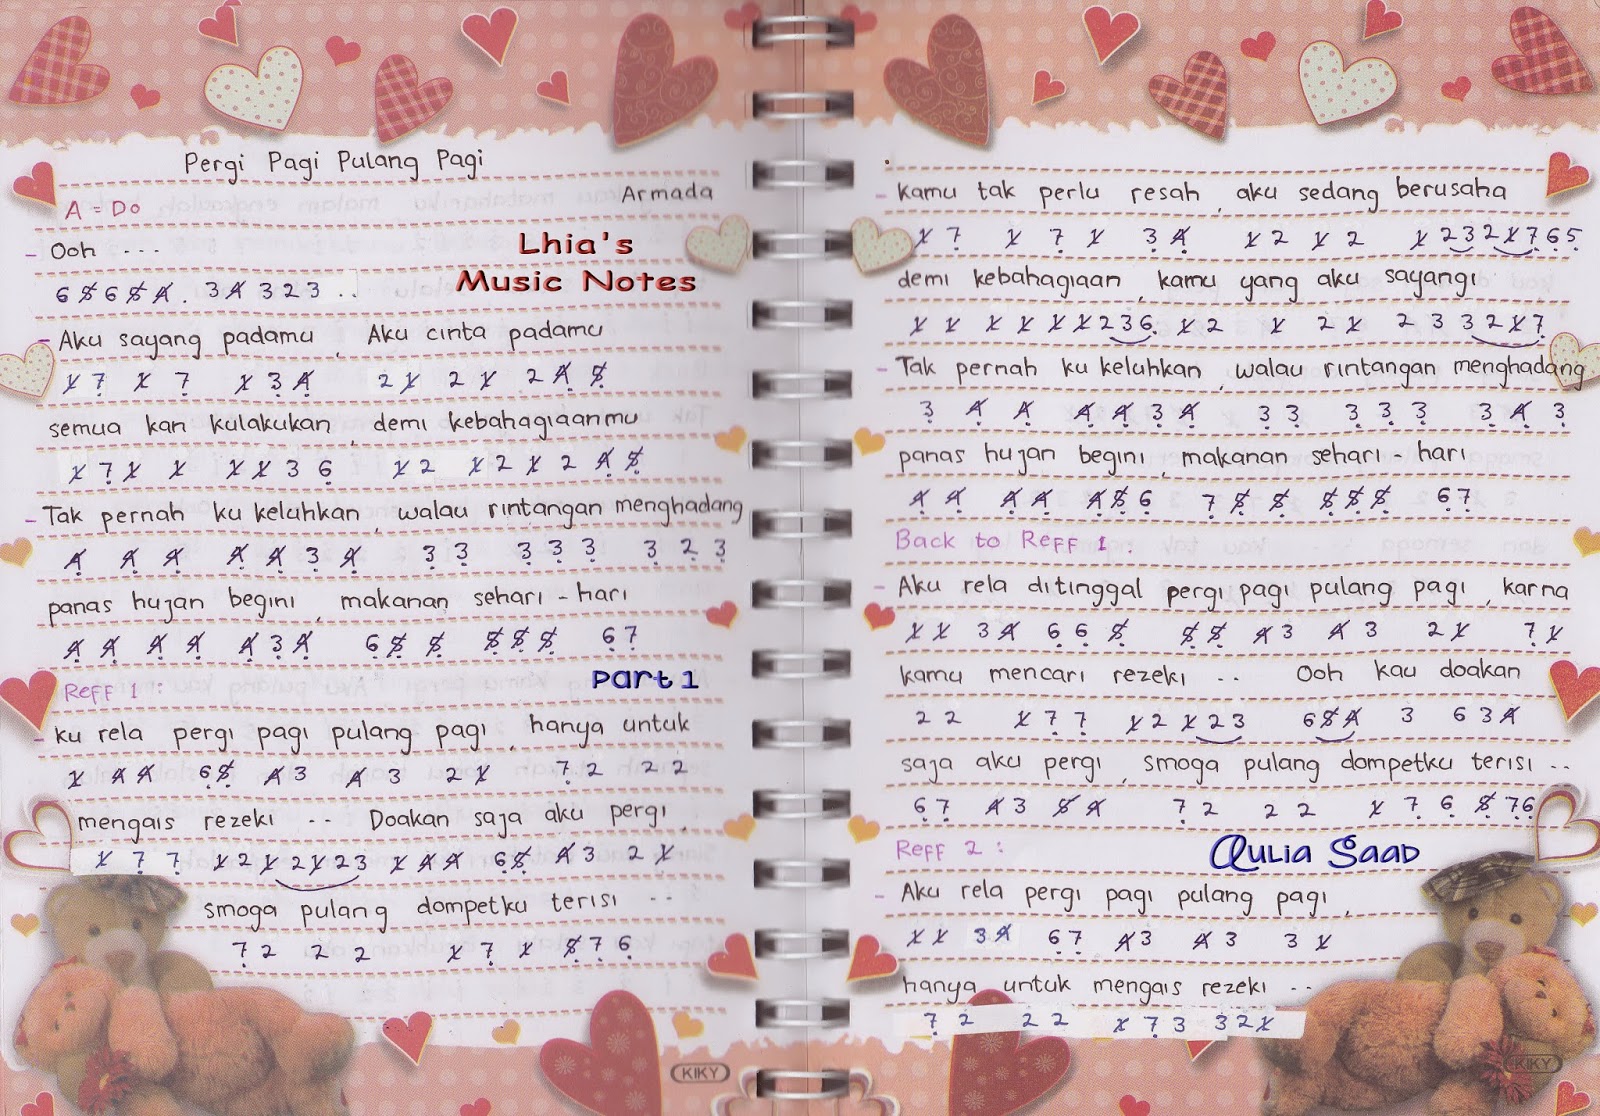 Pergi Pagi Pulang Pagi
Armada
A = Do
- Ooh ...
Lhia's
Music Notes
6 5 6 5 4 . 3 4 3 2 3 ..
- Aku sayang padamu , Aku cinta padamu
1 7 1 7 1 3 4 2 1 2 1 2 4 5
semua kan kulakukan , demi kebahagiaanmu
1 7 1 1 1 1 3 6 1 2 1 2 1 2 4 5
- Tak pernah ku keluhkan , walau rintangan menghadang
4 4 4 4 4 3 4 3 3 3 3 3 3 2 3
panas hujan begini , makanan sehari - hari
4 4 4 4 4 3 4 6 5 5 5 5 5 6 7
Part 1
Reff 1 :
- ku rela pergi pagi pulang pagi , hanya untuk
1 4 4 6 5 4 3 4 3 2 1 7 2 2 2
mengais rezeki .. Doakan saja aku pergi ,
1 7 7 1 2 1 2 1 2 3 1 4 4 6 5 4 3 2 1
smoga pulang dompetku terisi ..
7 2 2 2 1 7 1 5 7 6
- kamu tak perlu resah , aku sedang berusaha
1 7 1 7 1 3 4 1 2 1 2 1 2 3 2 1 7 6 5
demi kebahagiaan , kamu yang aku sayangi
1 1 1 1 1 1 2 3 6 . 1 2 1 2 1 2 3 3 2 1 7
- Tak pernah ku keluhkan , walau rintangan menghadang
3 4 4 4 4 3 4 3 3 3 3 3 3 4 3
panas hujan begini , makanan sehari - hari
4 4 4 4 4 5 6 7 5 5 5 5 5 6 7
Back to Reff 1 :
- Aku rela ditinggal pergi pagi pulang pagi , karna
1 1 3 4 6 6 5 5 5 4 3 4 3 2 1 7 1
kamu mencari rezeki .. Ooh kau doakan
2 2 1 7 7 1 2 1 2 3 6 5 4 3 6 3 4
saja aku pergi , smoga pulang dompetku terisi ..
6 7 4 3 5 4 7 2 2 2 1 7 6 5 7 6
Reff 2 :
Qulia Saad
- Aku rela pergi pagi pulang pagi ,
1 1 3 4 6 7 4 3 4 3 3 1
hanya untuk mengais rezeki ..
7 2 2 2 1 7 3 3 2 1
KIKY
KIKY